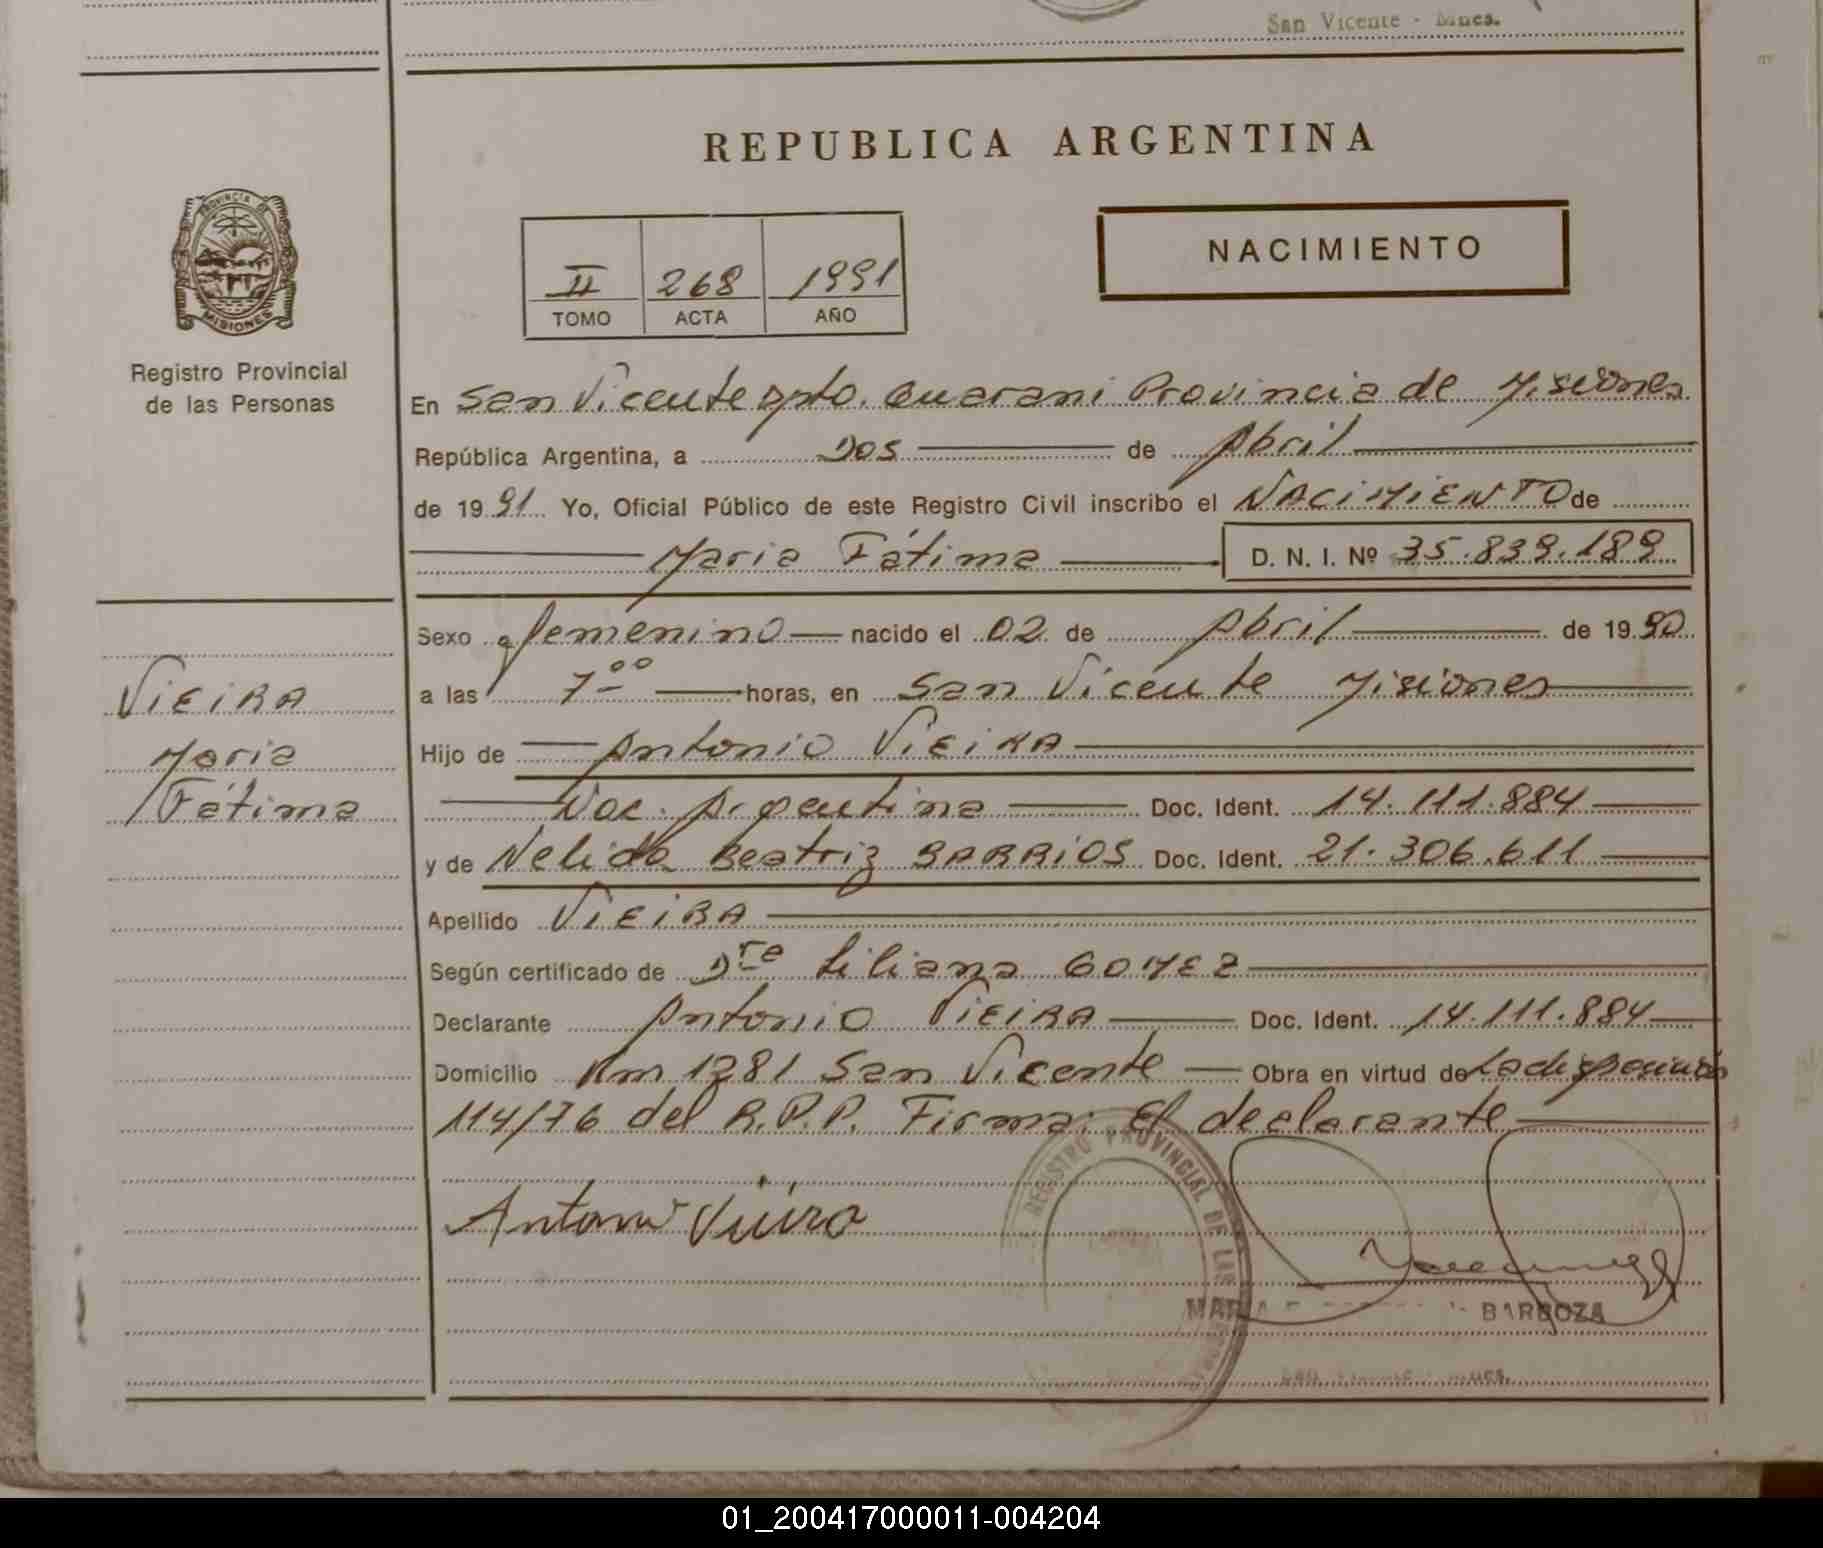 San Vicente - Mnes.
REPUBLICA ARGENTINA
PROVINCIA DE
MISIONES
Registro Provincial
de las Personas
II 268 1991
TOMO ACTA AÑO
NACIMIENTO
En San Vicente Dpto. Guarani Provincia de Misiones
República Argentina, a Dos de Abril
de 1991 Yo, Oficial Público de este Registro Civil inscribo el NACIMIENTO de
Maria Fátima D. N. I. Nº 35.839.189
Sexo femenino nacido el 02 de Abril de 1990
a las 7 ºº horas, en San Vicente Misiones
VIEIRA
Maria
Fátima
Hijo de Antonio VIEIRA
Nac. Argentina Doc. Ident. 14.111.884
y de Nelida Beatriz BARRIOS Doc. Ident. 21.306.611
Apellido VIEIRA
Según certificado de Dra Liliana GOMEZ
Declarante Antonio VIEIRA Doc. Ident. 14.111.884
Domicilio Km 1281 San Vicente Obra en virtud de La disposición
114/76 del R.P.P. Firma: El declarante
Antonio Vieira
REGISTRO PROVINCIAL DE LAS
MARIA BARBOZA
San Vicente - Mnes.
01_200417000011-004204